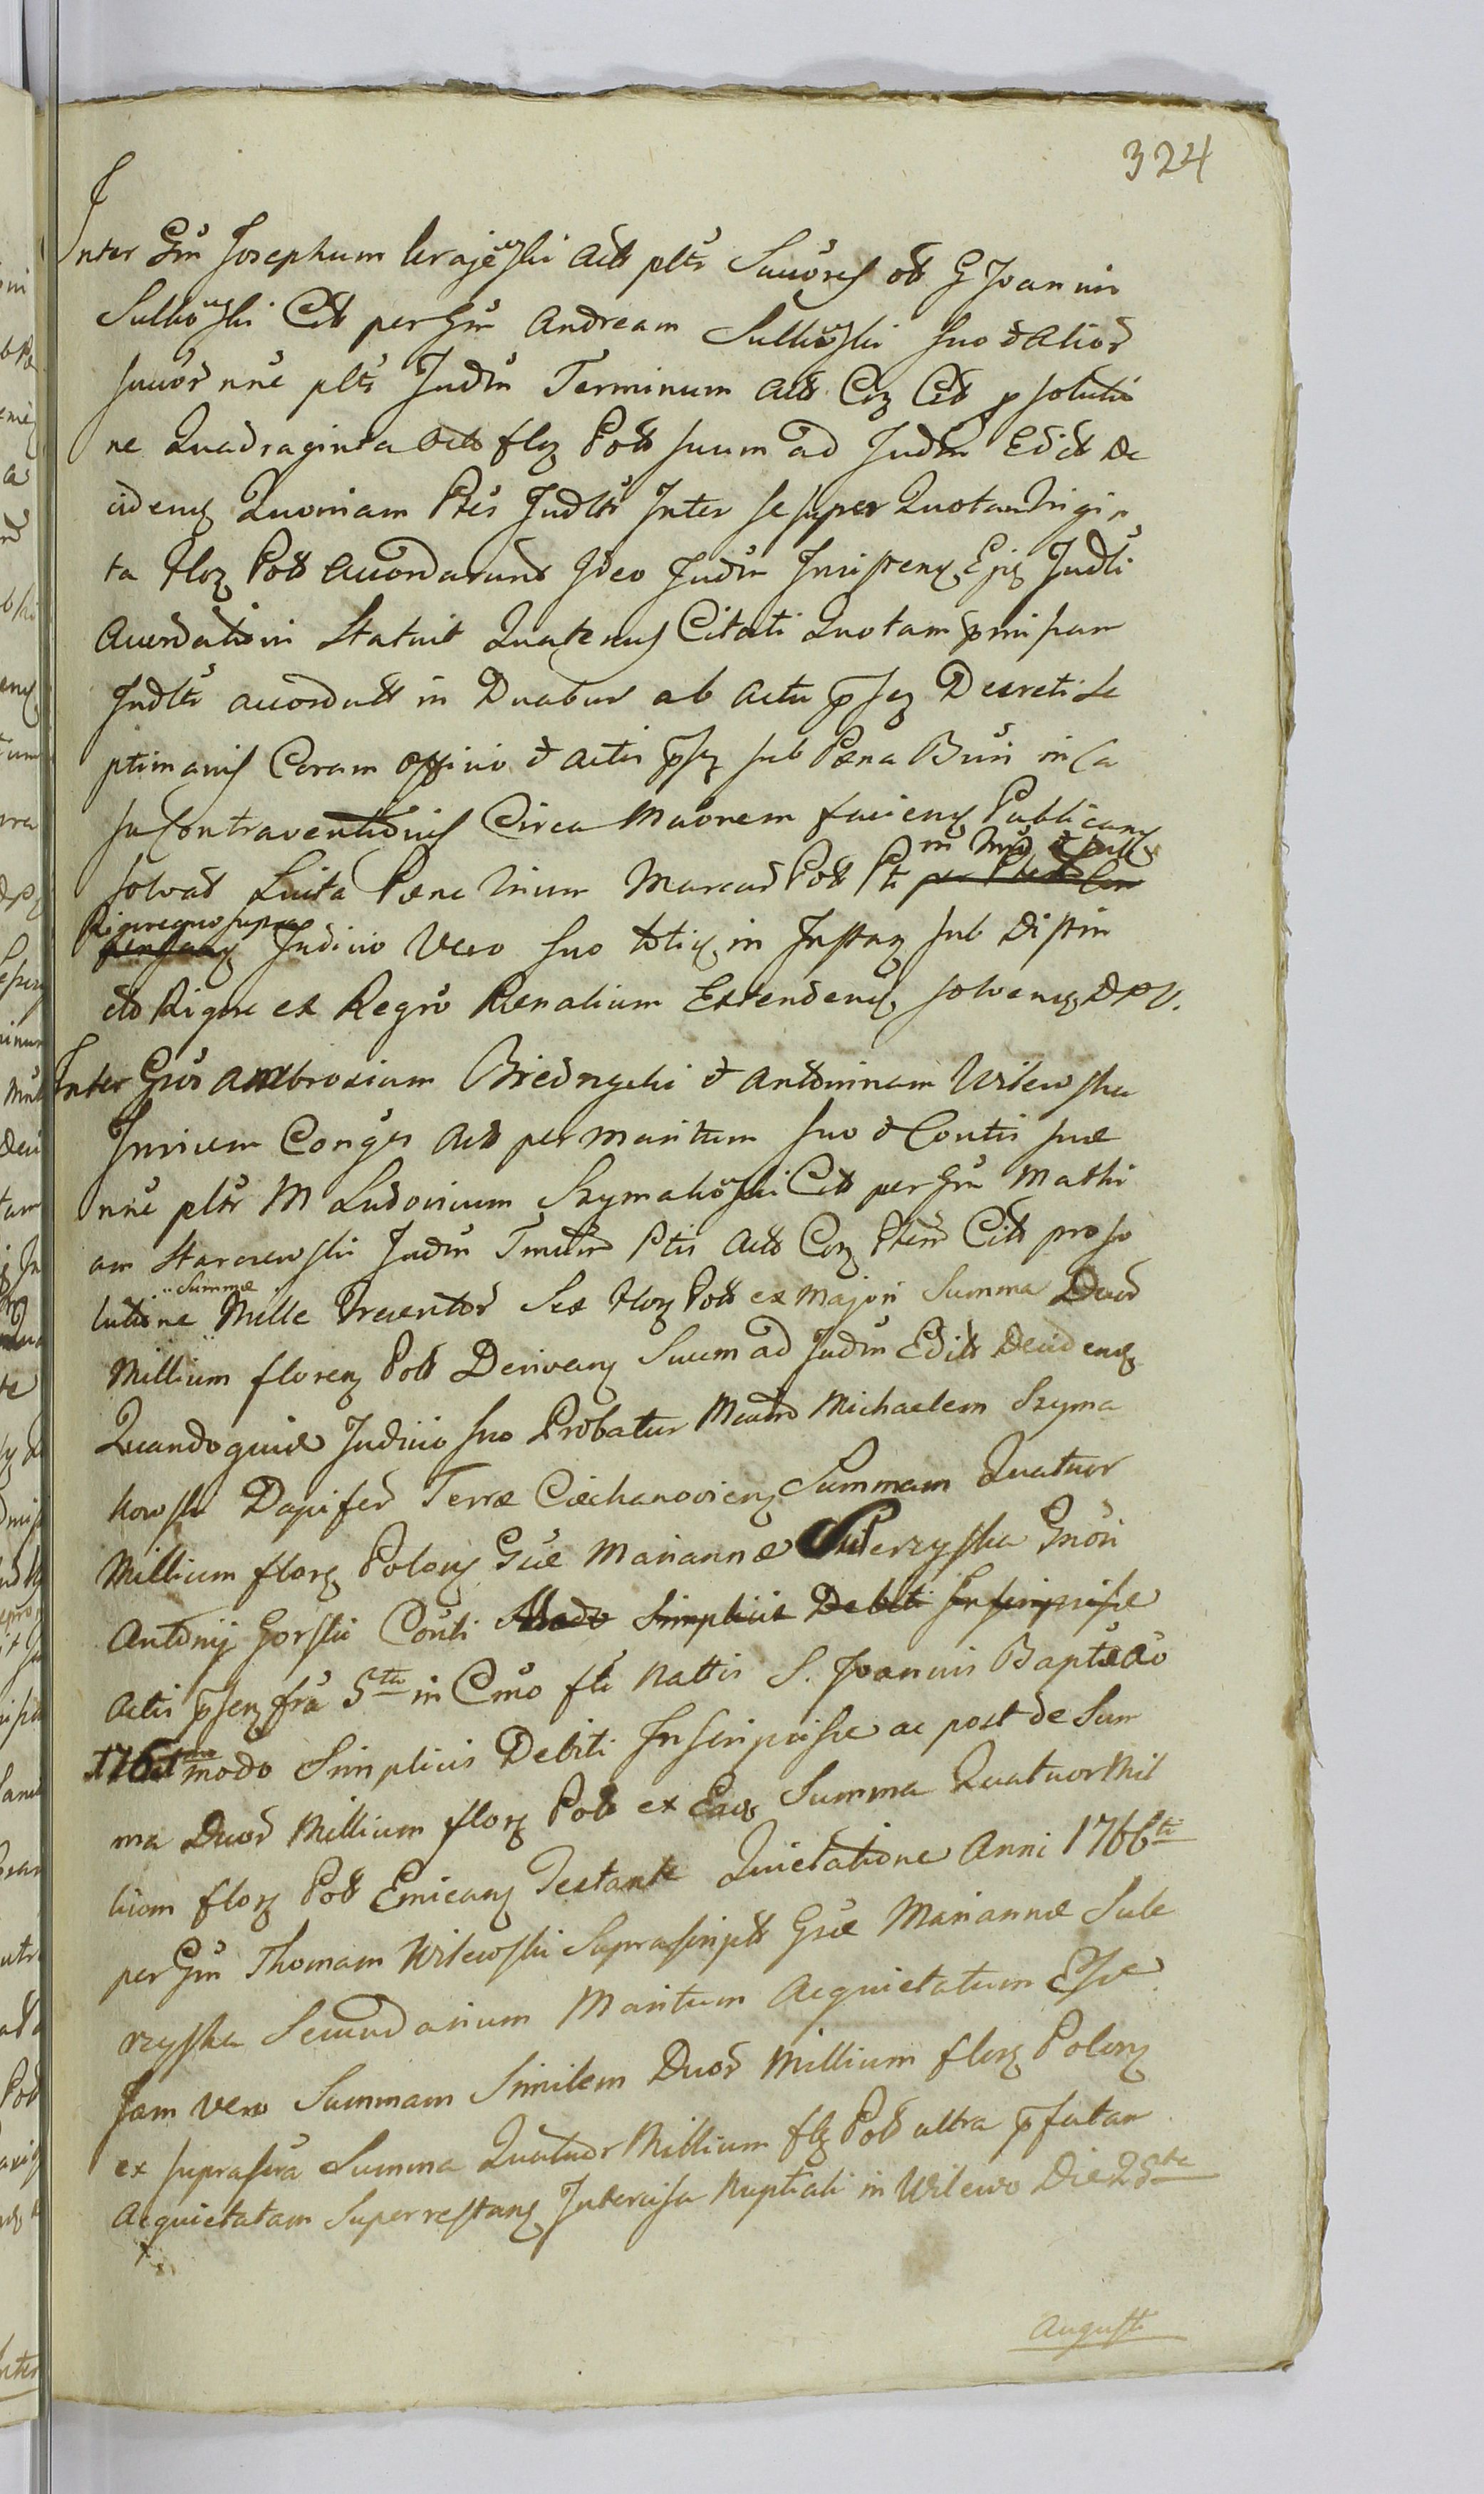 324
Inter Gm Josephum Krajewski Actt pltr Succores ob G Joannis
Sulkowski Citt per Gm Andream Sulkowski suo & Alior
succor nne pltr Judm Terminum Actt Coz Citt p solutio
ne Quadraginta Octo flz Poll suum ad Judm Edict De
cidenz Quoniam Ptes Judltr Inter se super Quotam Trigin
ta floz Poll accordarunt Ideo Judm Insistenz Ejz Judli
Accordationi Statuit Quatenus Citati Quotam pmissam
Judltr accordatt in Duabus ab actu psz Decreti Se
ptimanis Coram Officio & actis psz sub Pæna Bnni in Ca
su Contraventionis Circa Mcionem faciens Publicanz
in
solvat Luita Pæna trium Marcar Poll Pti per
Rigoreque supra
Judicio Vero suo toties in Instanz sub Distin
cto Rigore ex Regro Pænalium Extendenz solvenz DPV.
Inter Gsos Ambrosium Biedrzycki & Antoninam Wilewska
Invicem Conges Actt per Maritum suo & Contis suæ
nne pltr M Ludovicum Szymakowski Citt per Gm Mathi
am Starczewski Judm Tmium Ptis Actt Coz Ptem Citt pro so
Summæ
lutione Mille Trecentor Sex floz Poll ex Majori Summa Duor
Millium florenz Poll Derivanz Suum ad Judm Edict Decidenz
Quandoquid Judicio suo Probatur Mcum Michaelem Szyma
kowski Dapifer Terræ Ciechanovienz Summam Quatuor
Millium florz Polonz Gsæ Mariannæ Sulerzyska Gnosi
Antonij Gorski Conti Modo Simplicis Debiti Inscripsisse
Actis psenz fra 5ta in Cmo fti Nattis S. Joannis Baptæ Ao
1761 modo Simplicis Debiti Inscripsisse ac post de Sum
ma Duor Millium florz Poll ex Eadz Summa Quatuor Mil
lium florz Poll Emicanz Testante Quietatione Anni 1766ti
per Gm Thomam Wilewski Suprascriptt Gsæ Mariannæ Sule
rzyska Secundarium Maritum Acquietatum Esse
Jam vero Summam Similem Duor Millium florz Polonz
ex suprascra Summa Quatuor Millium flz Poll ultra pfatam
Acquietatam Superrestanz Intercisa Nuptiali in Wilewo Die 28va
Augusti